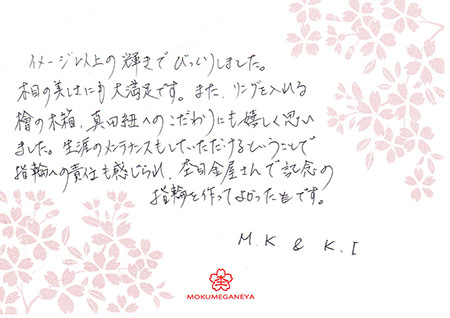 イメージ以上の輝きでびっくりしました。
木目の美しさにも大満足です。また、リングを入れる
檜の木箱、真田紐へのこだわりにも嬉しく思い
ました。生涯のメンテナンスもしていただけるということで
指輪への責任も感じられ、杢目金屋さんで記念の
指輪を作ってよかったです。
M.K & K.I
MOKUMEGANEYA